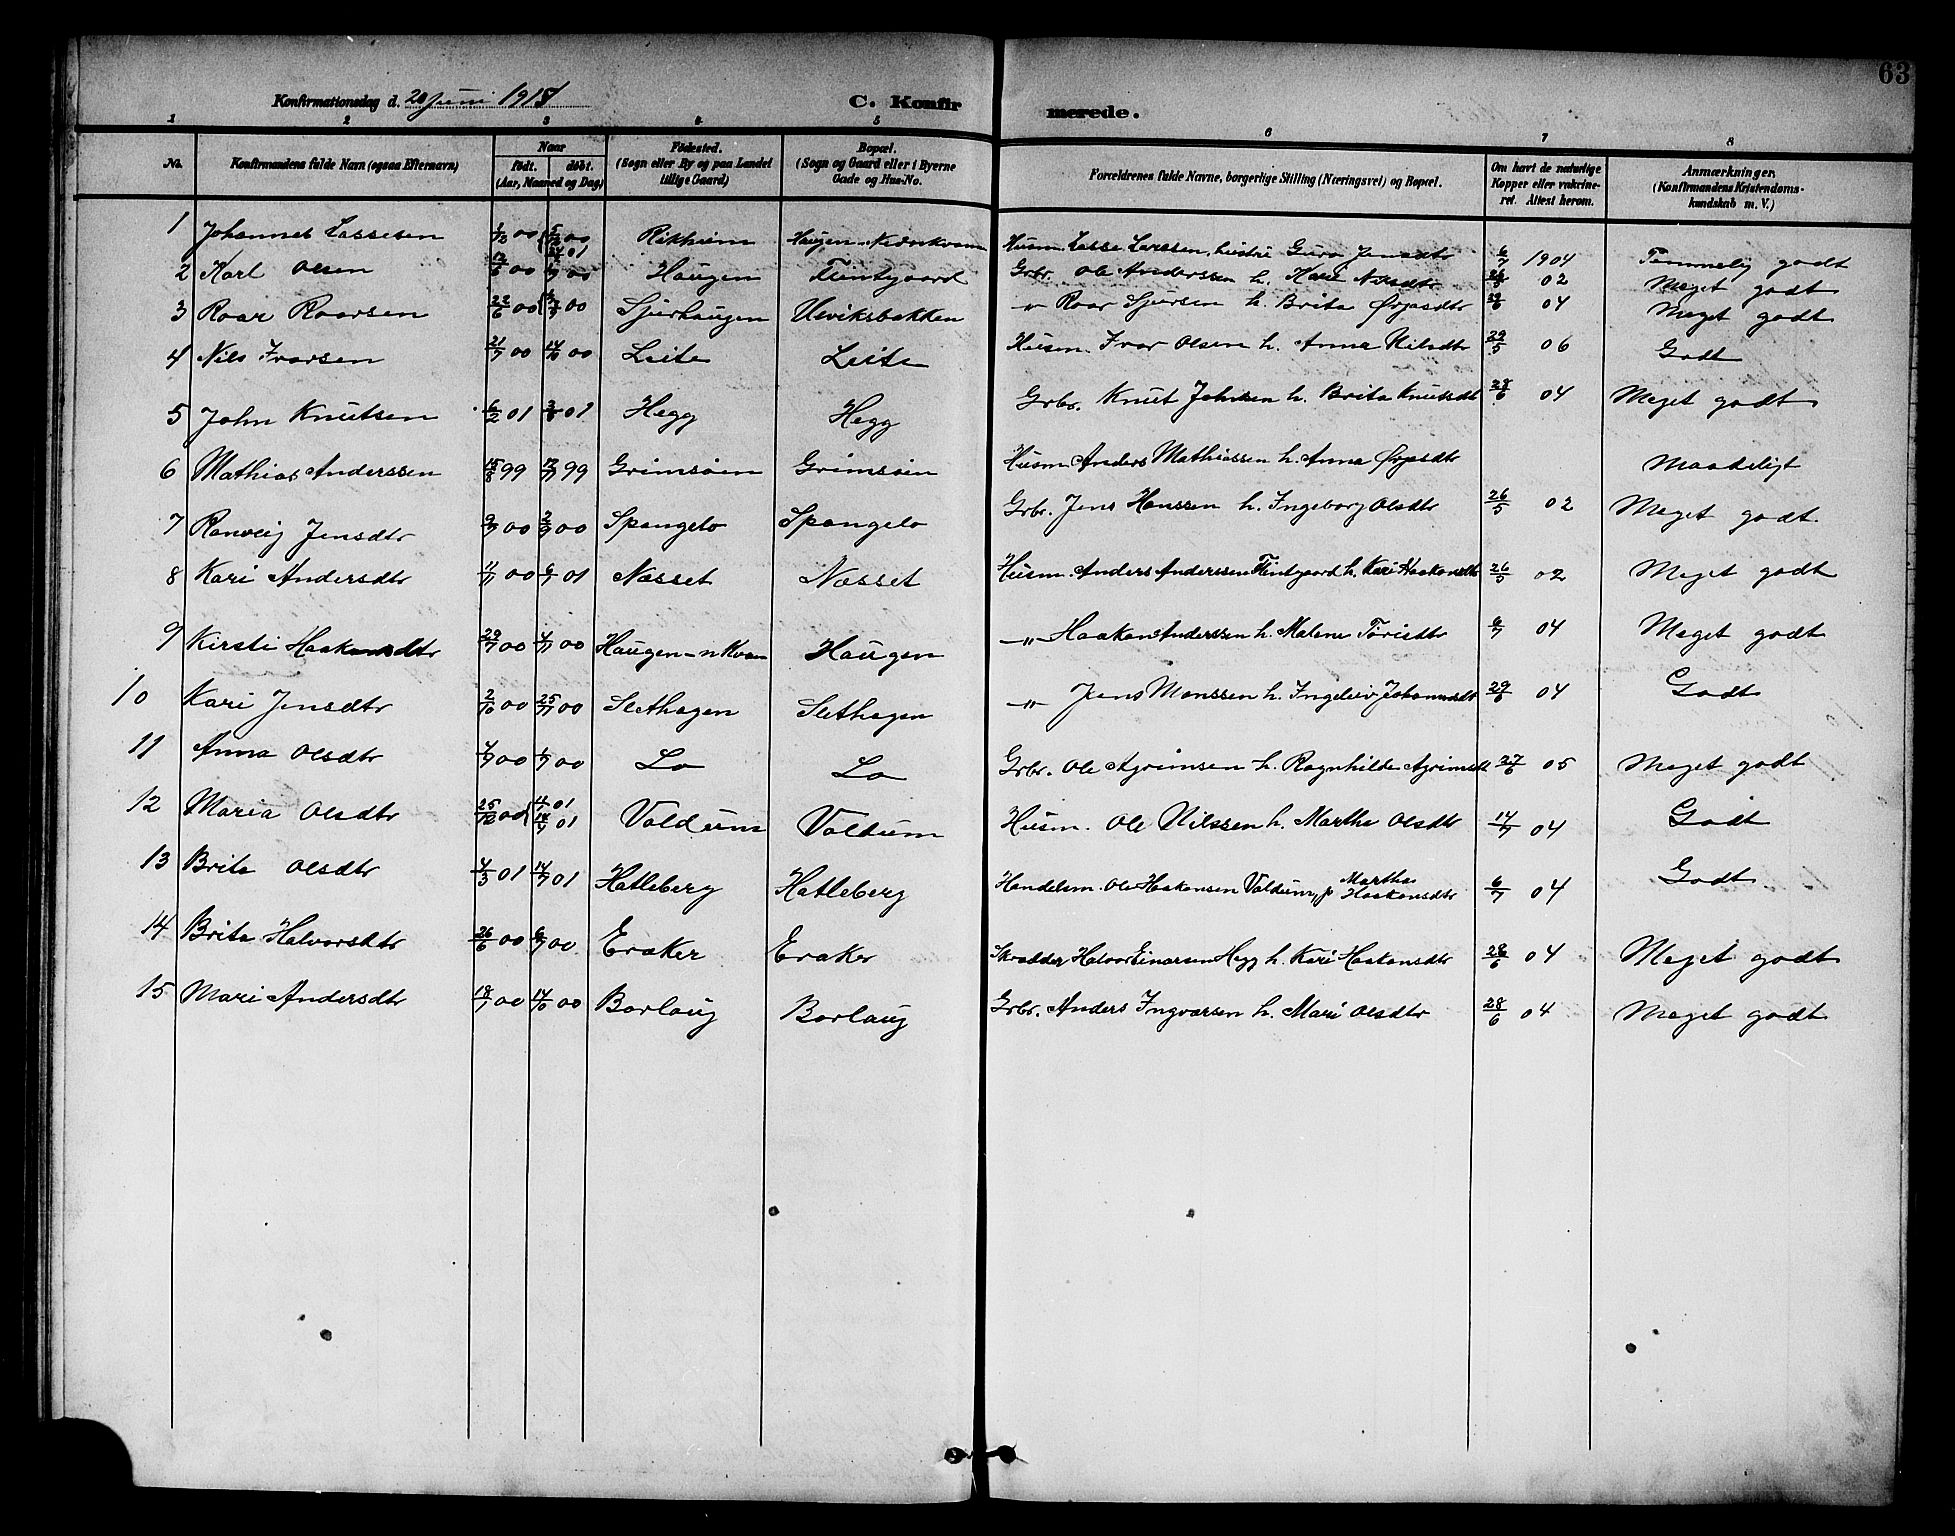 63
Konfirmationsdag d. 20 Juni 1915 C. Konfirmerede.
1 2 3 4 5 6 7 8
No. Konfirmandens fulde Navn (ogsaa Efternavn) Naar født. døbt. (Aar, Maaned og Dag) Fødested. (Sogn eller By og paa Landet tillige Gaard) Bopæl. (Sogn og Gaard eller i Byerne Gade og Hus-No. Forældrenes fulde Navne, borgerlige Stilling (Næringsvei) og Bopæl. Om havt de naturlige Kopper eller vakcineret. Attest herom. Anmærkninger. (Konfirmandens Kristendomskundskab m. V.)
1 Johannes Lassesen 00 00 01 Rikheim Haugen Husm. Lasse Larssen, hustru Guro Jensdtr 6/7 1904 Temmelig godt
2 Karl Olsen 00 00 Haugen Tuntgaard Grbr. Ole Anderssen h. Kari Nilsdtr 02 Meget godt
3 Roar Roarsen 22/6 00 00 Sjurhaugen Ulviksbakken " Roar Sjursen h. Brita Ørjasdtr 04 Meget godt
4 Nils Ivarsen 21/7 00 00 Leite Leite Husm. Ivar Olsen h. Anna Nilsdtr 29/5 06 Godt
5 John Knutsen 6/2 01 01 Hegg Hegg Grbr. Knut Johnsen h. Brita Knutsdtr 28/6 04 Meget godt
6 Mathias Anderssen 15/8 99 99 Grimsøien Grimsøien Husm. Anders Mathiassen h. Anna Ørjasdtr Maadeligt
7 Ranveig Jensdtr 00 2/9 00 Spangelo Spangelo Grbr. Jens Hanssen h. Ingeborg Olsdtr 26/5 02 Meget godt.
8 Kari Andersdtr 00 01 Næsset Næsset Husm. Anders Anderssen Tuntgaard h. Kari Haakonsdtr 26/5 02 Meget godt
9 Kirsti Haakonsdtr 29/7 00 00 Haugen - n Kvam Haugen " Haakon Anderssen h. Malene Tørisdtr 04 Meget godt
10 Kari Jensdtr 2/10 00 00 Slethagen Slethagen " Jens Monssen h. Ingeleiv Johannesdtr 29/6 04 Godt
11 Anna Olsdtr 00 00 Lo Lo Grbr. Ole Agrimsen h. Ragnhilda Agrimsdt 27/6 05 Meget godt
12 Maria Olsdtr 25/12 00 01 01 Voldum Voldum Husm. Ole Nilssen h. Martha Olsdtr 14/7 04 Godt
13 Brita Olsdtr 4/3 01 14/7 01 Hatleberg Hatleberg Handelsm. Ole Haakonsen Voldum, p Martha Haakonsdtr 6/7 04 Godt
14 Brita Halvorsdtr 26/6 00 00 Eraker Eraker Skrædder Halvor Einarsen Hegg h. Kari Haakonsdtr 28/6 04 Meget godt
15 Mari Andersdtr 18/7 00 00 Borlaug Borlaug Grbr. Anders Ingvarsen h. Mari Olsdtr 28/6 04 Meget godt